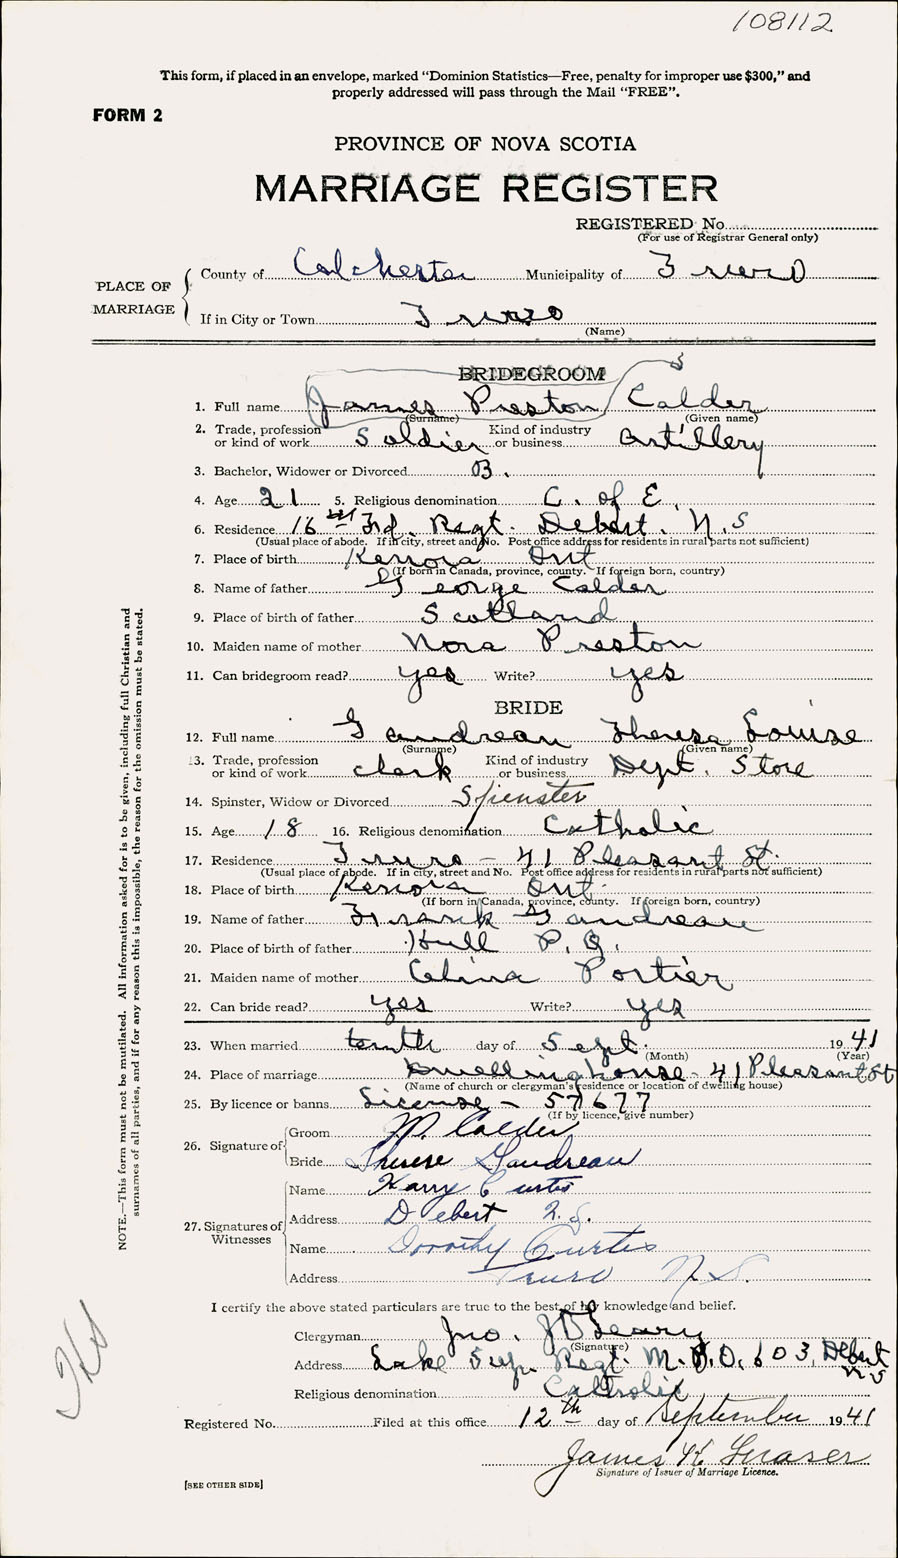 108112
This form, if placed in an envelope, marked “Dominion Statistics—Free, penalty for improper use $300,” and
properly addressed will pass through the Mail “FREE”.
FORM 2
PROVINCE OF NOVA SCOTIA
MARRIAGE REGISTER
REGISTERED No.
(For use of Registrar General only)
PLACE OF MARRIAGE
County of Colchester Municipality of Truro
If in City or Town Truro
(Name)
BRIDEGROOM
1. Full name James Preston Calder
(Surname) (Given name)
2. Trade, profession or kind of work Soldier Kind of industry or business Artillery
3. Bachelor, Widower or Divorced B.
4. Age 21 5. Religious denomination C. of E.
6. Residence 16th Fd. Regt. Debert. N.S
(Usual place of abode. If in city, street and No. Post office address for residents in rural parts not sufficient)
7. Place of birth Kenora Ont
(If born in Canada, province, county. If foreign born, country)
8. Name of father George Calder
9. Place of birth of father Scotland
10. Maiden name of mother Nora Preston
11. Can bridegroom read? yes Write? yes
BRIDE
12. Full name Gaudreau Theresa Louise
(Surname) (Given name)
13. Trade, profession or kind of work clerk Kind of industry or business Dept. Store
14. Spinster, Widow or Divorced Spinster
15. Age 18 16. Religious denomination Catholic
17. Residence Truro - 41 Pleasant St.
(Usual place of abode. If in city, street and No. Post office address for residents in rural parts not sufficient)
18. Place of birth Kenora Ont.
(If born in Canada, province, county. If foreign born, country)
19. Name of father Frank Gaudreau
20. Place of birth of father Hull P.Q.
21. Maiden name of mother Celina Portier
22. Can bride read? yes Write? yes
23. When married tenth day of Sept. 1941
(Month) (Year)
24. Place of marriage Dwelling house - 41 Pleasant St
(Name of church or clergyman's residence or location of dwelling house)
25. By licence or banns License - 57677
(If by licence, give number)
26. Signature of
Groom JP. Calder
Bride Therese Gaudreau
27. Signatures of Witnesses
Name Harry Curtis
Address Debert N.S.
Name Dorothy Curtis
Address Truro N.S.
I certify the above stated particulars are true to the best of my knowledge and belief.
Clergyman Jno. J O'Leary
(Signature)
Address Lake Sup. Regt. M.P.O. 603, Debert N.S
Religious denomination Catholic
Registered No. Filed at this office 12th day of September 1941
James K Fraser
Signature of Issuer of Marriage Licence.
[SEE OTHER SIDE]
NOTE.—This form must not be mutilated. All information asked for is to be given, including full Christian and
surnames of all parties, and if for any reason this is impossible, the reason for the omission must be stated.